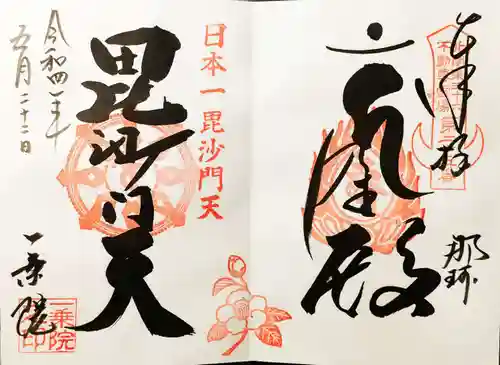 奉拝
殿
那珂
日本一毘沙門天
毘沙門天
令和四年
五月二十二日
一乗院
一乗院印